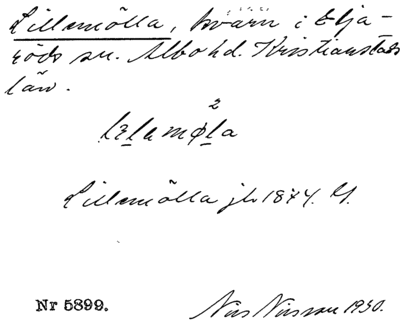 Lillemölla, kvarn i Eljaröds
sn. Albo hd. Kristianstads
län.
2
Lillemölla jb 1874.
Nr 5899. Nils Nilsson 1930.